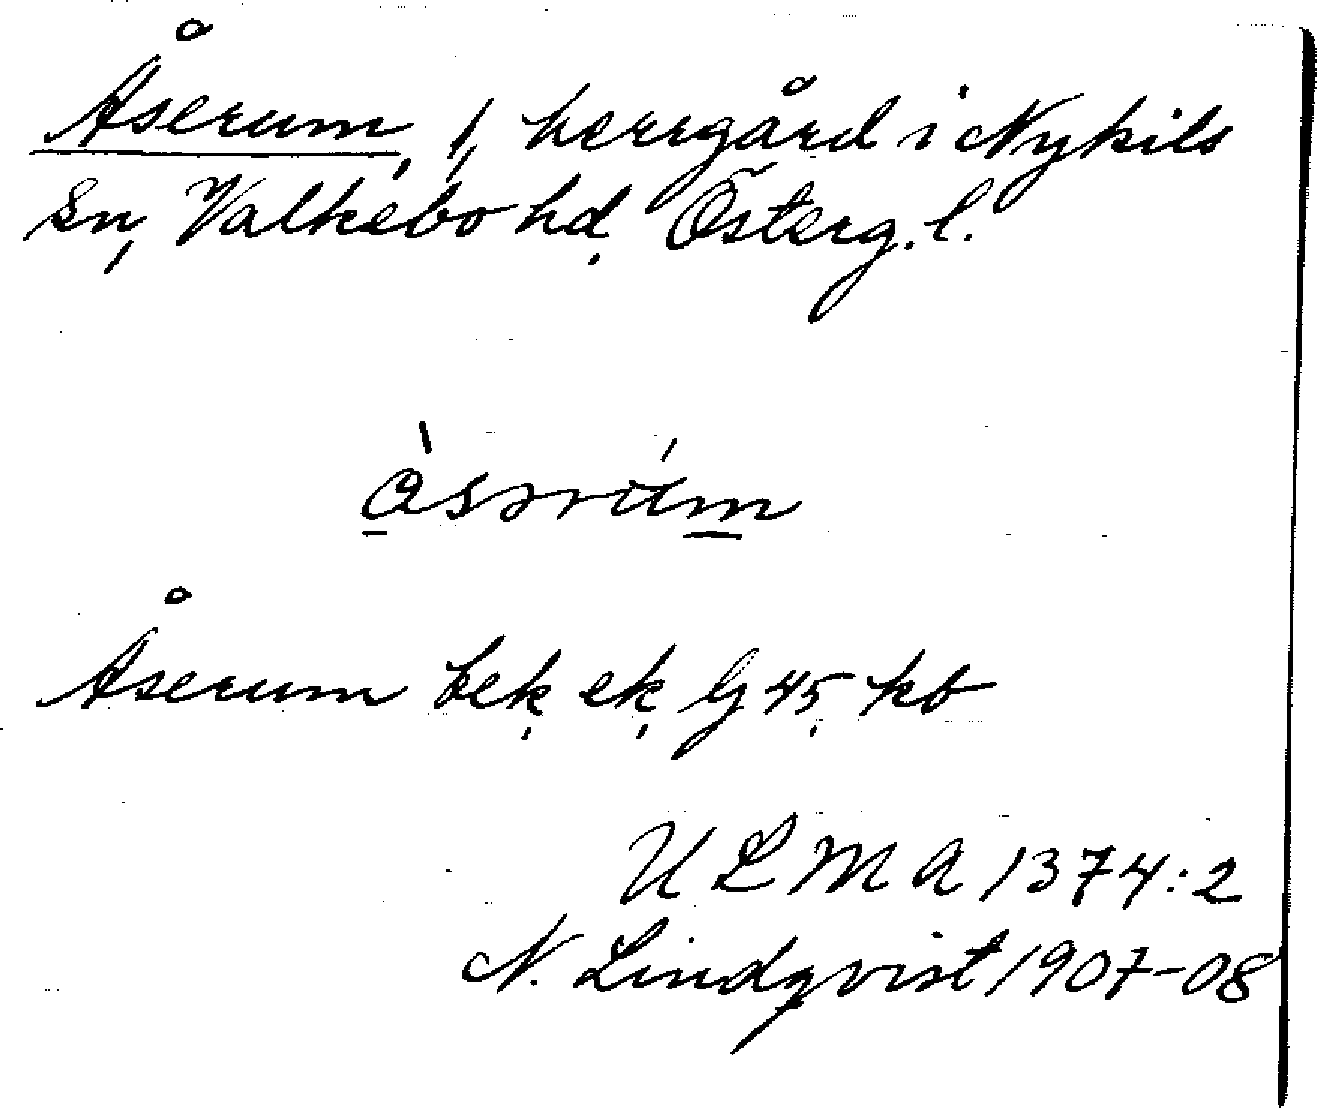 Åserum, 1, herrgård i Nykils
sn, Valkebo hd, Österg. l.
Åserum bek, ek, G 45, kb
ULMA 1374:2
N. Lindqvist 1907-08